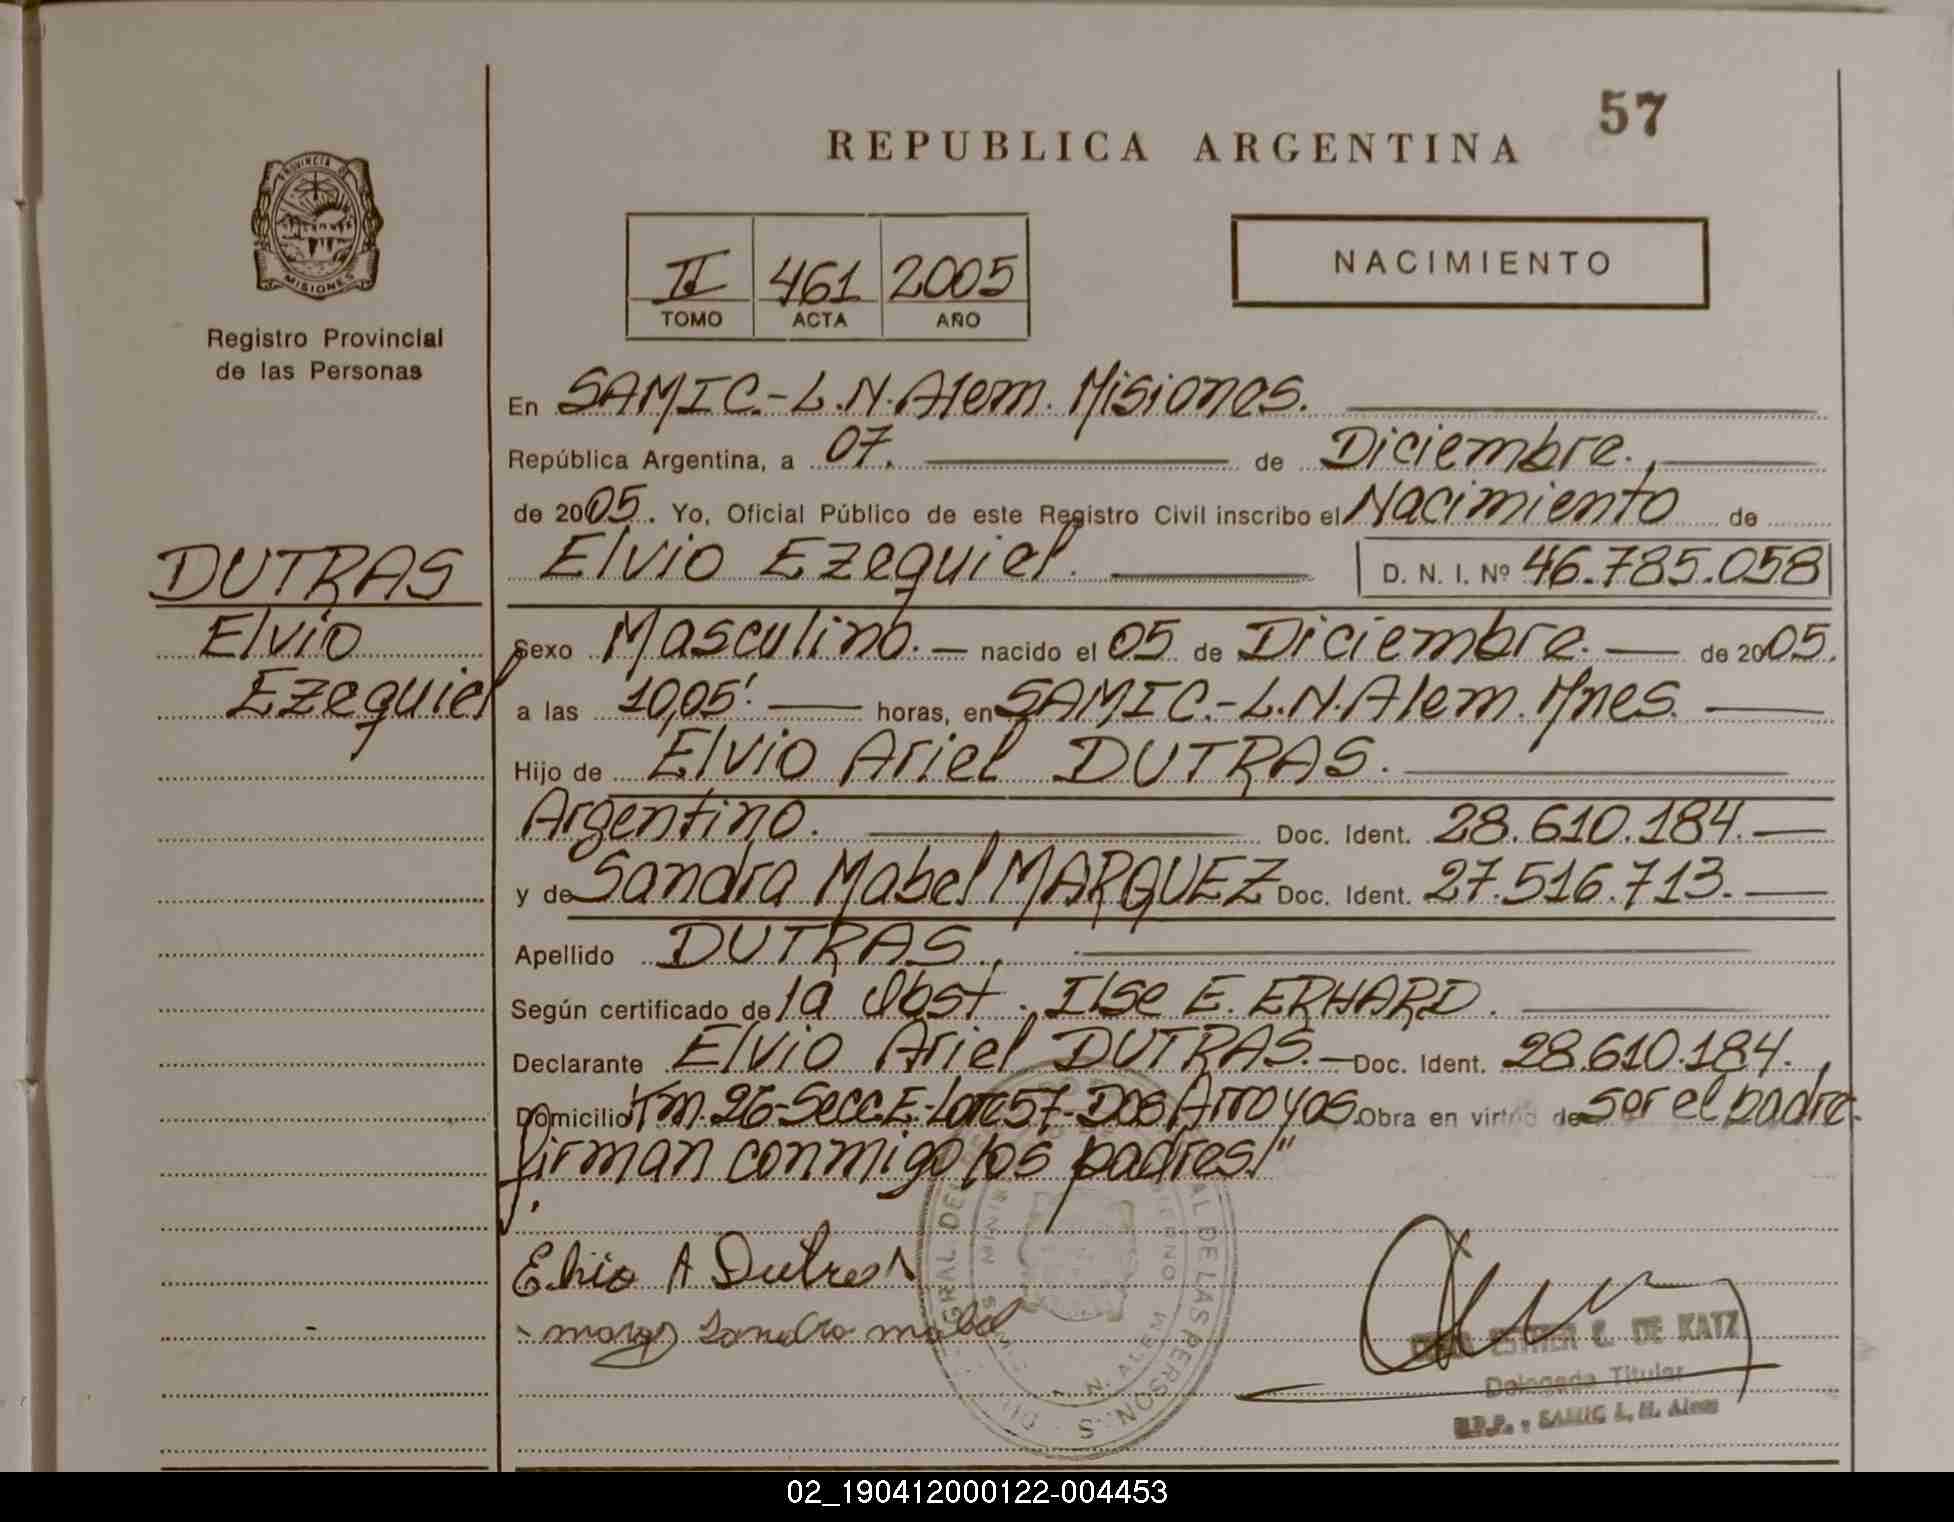 57
REPUBLICA ARGENTINA
PROVINCIA DE
MISIONES
Registro Provincial
de las Personas
II 461 2005
TOMO ACTA AÑO
NACIMIENTO
En SAMIC.-L.N.Alem. Misiones.
República Argentina, a 07. de Diciembre.,
de 2005. Yo, Oficial Público de este Registro Civil inscribo el Nacimiento de
Elvio Ezequiel. D. N. I. Nº 46.785.058
DUTRAS
Elvio
Ezequiel
Sexo Masculino. nacido el 05 de Diciembre. de 2005.
a las 10,05'. horas, en SAMIC.-L.N.Alem. Mnes.
Hijo de Elvio Ariel DUTRAS.
Argentino. Doc. Ident. 28.610.184.
y de Sandra Mabel MARQUEZ Doc. Ident. 27.516.713.
Apellido DUTRAS.
Según certificado de la Obst. Ilse E. ERHARD.
Declarante Elvio Ariel DUTRAS. Doc. Ident. 28.610.184.,
Domicilio Km.26-Secc.E-Lote57-Dos Arroyos. Obra en virtud de ser el padre.
firman conmigo los padres."
Elvio A Dutras
Sandra mabel
DE LAS PERSONAS
N. ALEM
ESTHER C. DE KATZ
Delegada Titular
R.P.P. - SAMIC L. N. Alem
02_190412000122-004453